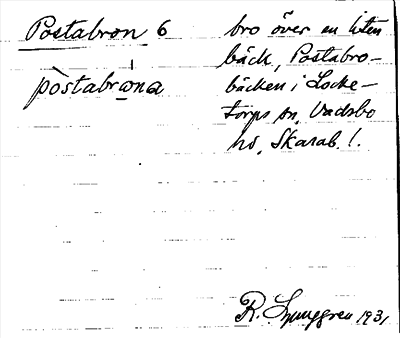 Postabron 6
pòstabrǫna
bro över en liten
bäck, Postabro-
bäcken i Locke-
torps sn, Vadsbo
hd, Skarab. l.
R. Ljunggren 1931